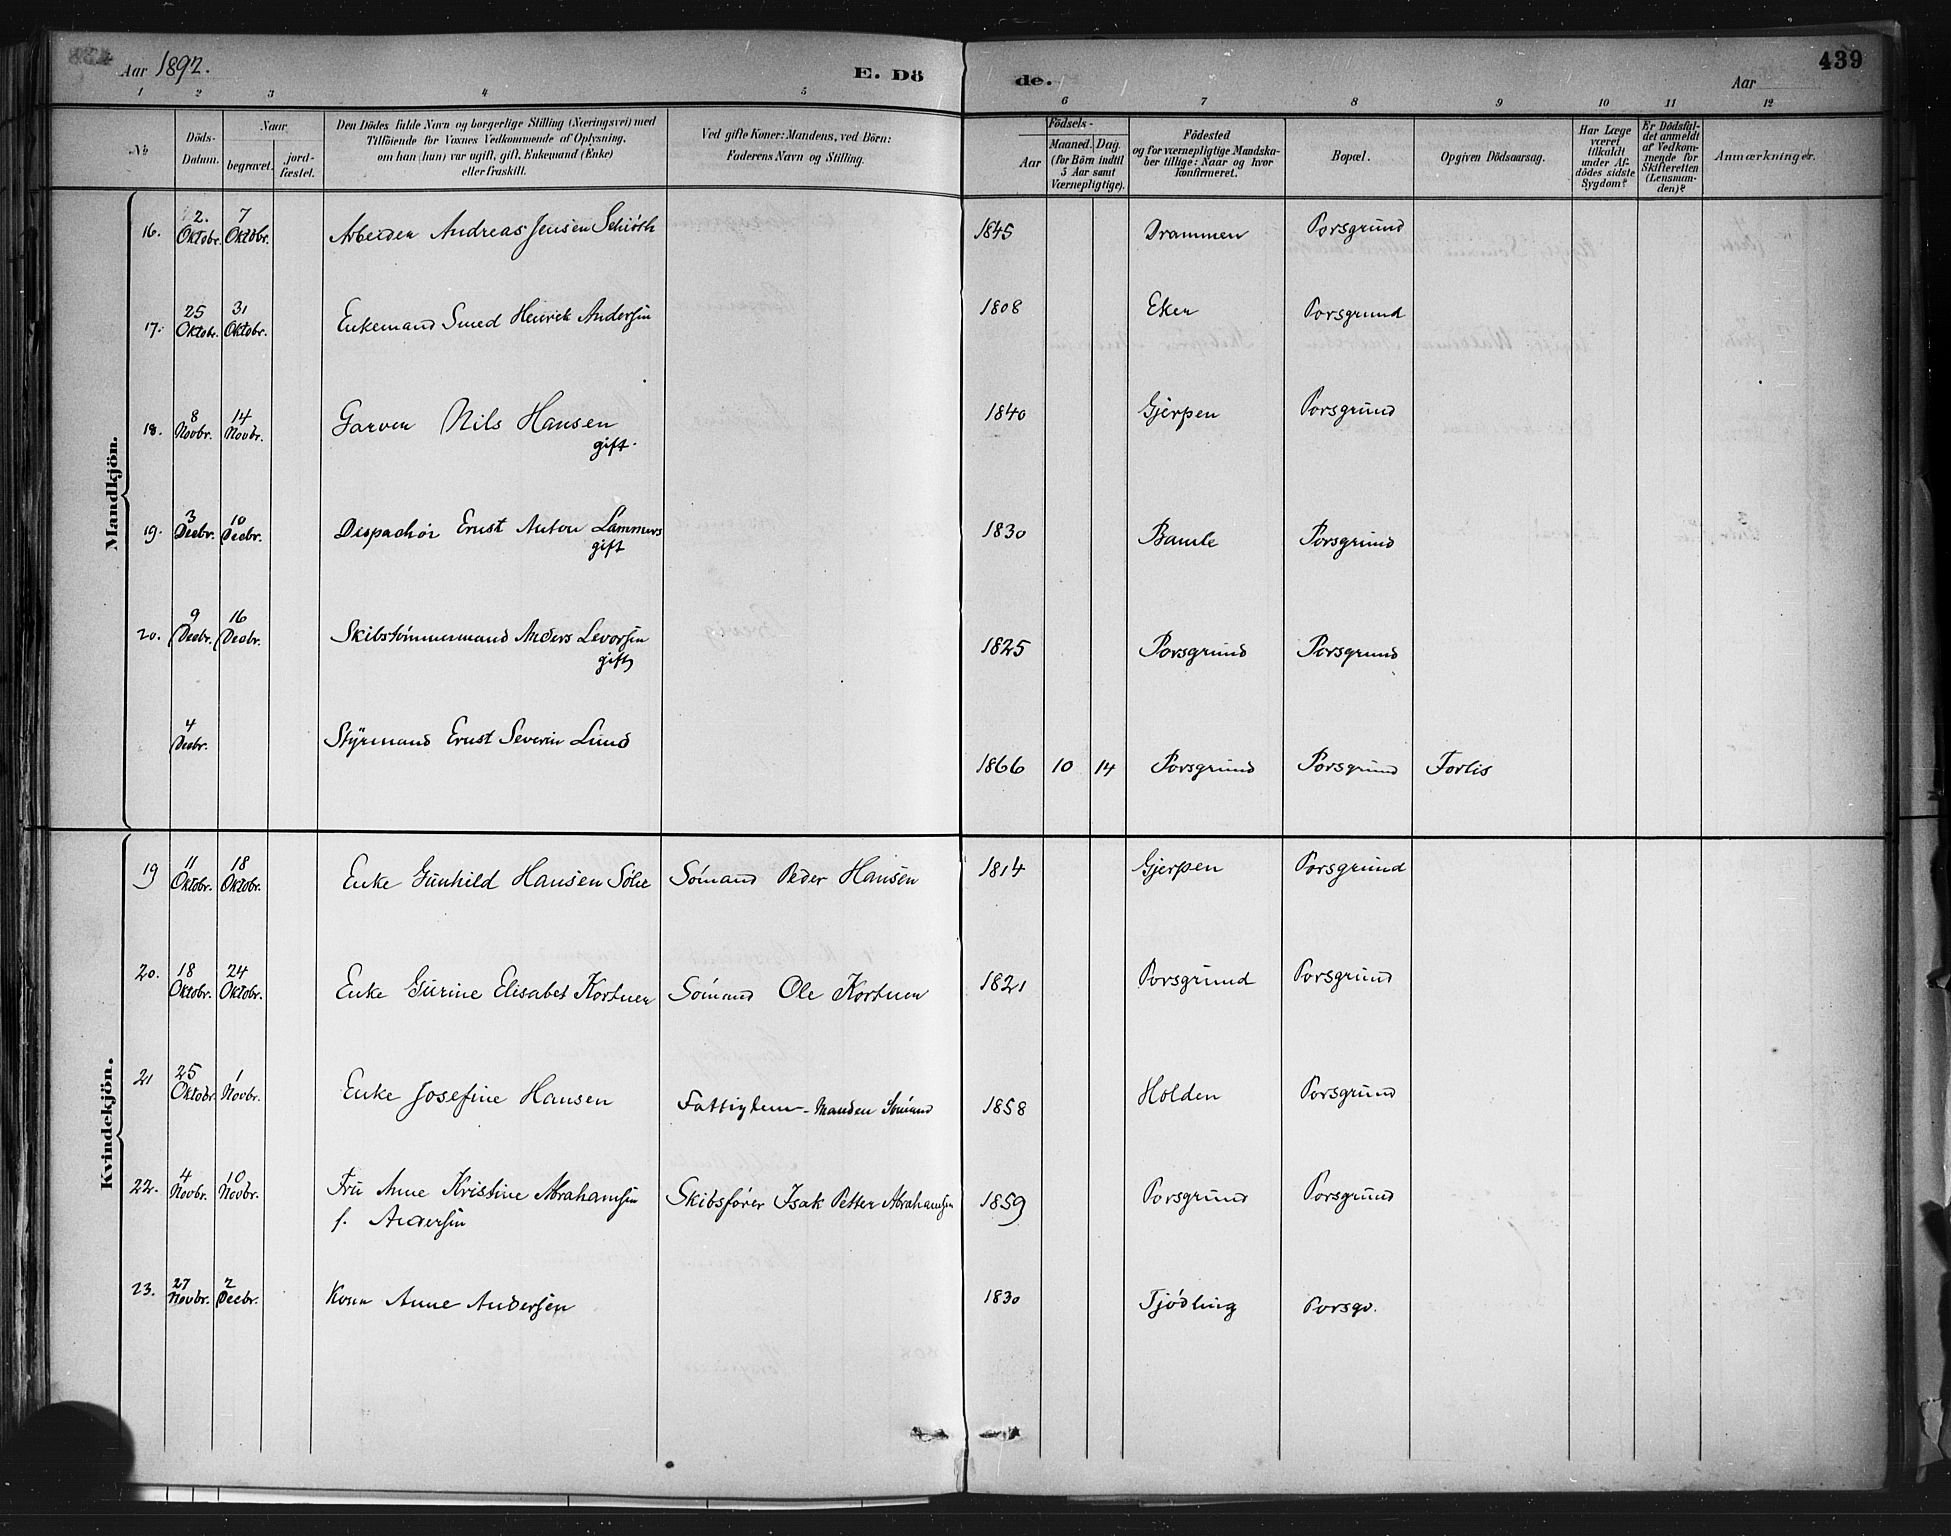 Aar 1892.
E. Döde.
439
Aar
1 2 3 4 5 6 7 8 9 10 11 12
No
Döds-Datum.
Naar
begravet.
jord-fæstet.
Den Dödes fulde Navn og borgerlige Stilling (Næringsvei) med
Tilföiende for Voxnes Vedkommende af Oplysning,
om han (hun) var ugift, gift, Enkemand (Enke)
eller fraskilt.
Ved gifte Koner: Mandens, ved Börn:
Faderens Navn og Stilling.
Födsels-
Aar
Maaned. Dag.
(for Börn indtil
5 Aar samt
Værnepligtige).
Födested
og for værnepligtige Mandska-
ber tillige: Naar og hvor
konfirmeret.
Bopæl.
Opgiven Dödsaarsag.
Har Læge
været
tilkaldt
under Af-
dödes sidste
Sygdom?
Er Dödsfal-
det anmeldt
af Vedkom-
mende for
Skifteretten
(Lensman-
den)?
Anmærkninger.
Mandkjön.
16. 2. Oktobr. 7 Oktobr. Arbeider Andreas Jensen Schiøth 1845 Drammen Porsgrund
17. 25 Oktobr. 31 Oktobr. Enkemand Smed Henrik Andersen 1808 Eker Porsgrund
18. 8 Novbr. 14 Novbr. Garver Nils Hansen 1840 Gjerpen Porsgrund
gift.
19. 3 Decbr. 10 Decbr. Dispachør Ernst Anton Lammers 1830 Bamle Porsgrund
gift
20. 9 Decbr. 16 Decbr. Skibstømmermand Anders Levorsen 1825 Porsgrund Porsgrund
gift
4 Decbr. Styrmand Ernst Severin Lund 1866 10 14 Porsgrund Porsgrund Forlis
Kvindekjön.
19 11 Oktobr. 18 Oktobr. Enke Gunhild Hansen Sølie Sømand Peder Hansen 1814 Gjerpen Porsgrund
20. 18 Oktobr. 24 Oktobr. Enke Gurine Elisabet Kortner Sømand Ole Kortner 1821 Porsgrund Porsgrund
21 25 Oktobr. 1 Novbr. Enke Josefine Hansen Fattiglem - Manden Sømand 1858 Holden Porsgrund
22. 4 Novbr. 10 Novbr. Fru Anne Kristine Abrahamsen Skibsfører Isak Petter Abrahamsen 1859 Porsgrund Porsgrund
f. Andersen
23. 27 Novbr. 2 Decbr. Anne Andersen 1830 Tjødling Porsgr.